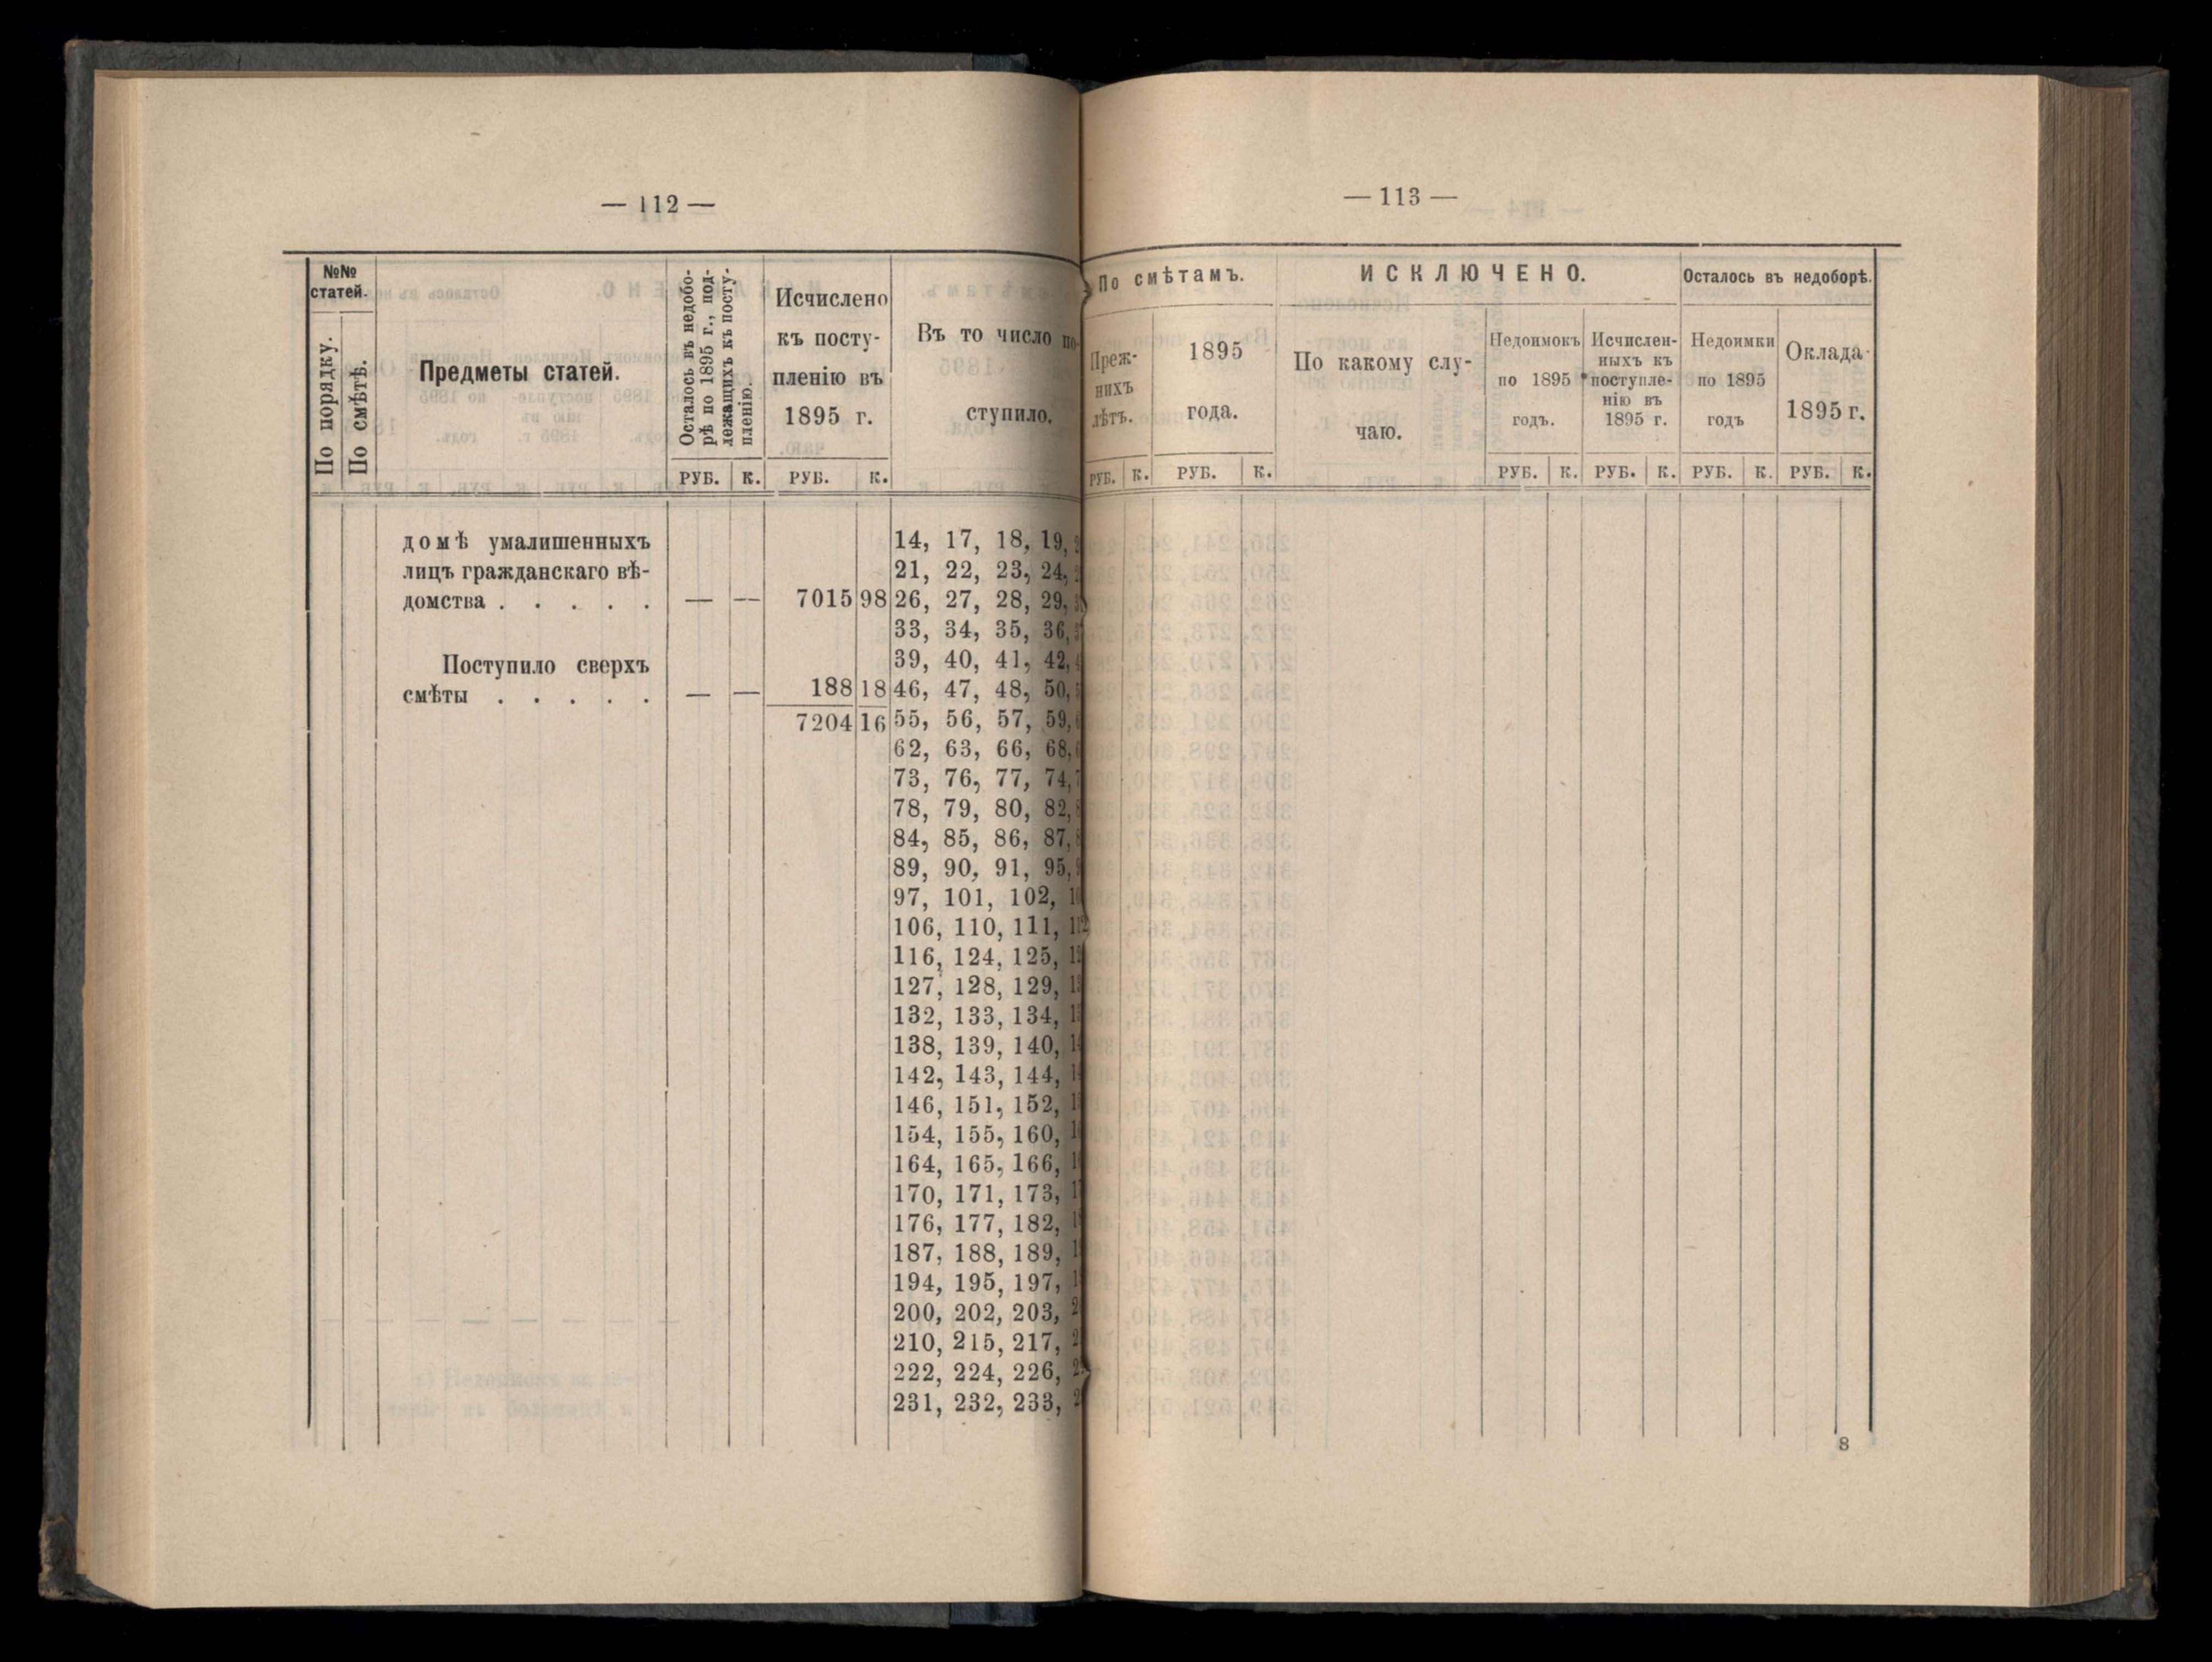 — 112 —
№№ статей.
По порядку.
По смѣтѣ.
Предметы статей.
Осталось въ недобо-
рѣ по 1895 г., под-
лежащихъ къ посту-
пленію.
Исчислено
къ посту-
пленію въ
1895 г.
Въ то число по-
ступило.
РУБ. К. РУБ. К.
домѣ умалишенныхъ
лицъ гражданскаго вѣ-
домства . . . . . — — 7015 98
Поступило сверхъ
смѣты . . . . . — — 188 18
7204 16
14, 17, 18, 19,
21, 22, 23, 24,
26, 27, 28, 29,
33, 34, 35, 36,
39, 40, 41, 42,
46, 47, 48, 50,
55, 56, 57, 59,
62, 63, 66, 68,
73, 76, 77, 74,
78, 79, 80, 82,
84, 85, 86, 87,
89, 90, 91, 95,
97, 101, 102,
106, 110, 111, 112
116, 124, 125,
127, 128, 129,
132, 133, 134,
138, 139, 140,
142, 143, 144,
146, 151, 152,
154, 155, 160,
164, 165, 166,
170, 171, 173,
176, 177, 182,
187, 188, 189,
194, 195, 197,
200, 202, 203,
210, 215, 217,
222, 224, 226,
231, 232, 233,
— 113 —
По смѣтамъ.
Преж-
нихъ
лѣтъ.
1895
года.
ИСКЛЮЧЕНО.
По какому слу-
чаю.
Недоимокъ
по 1895
годъ.
Исчислен-
ныхъ къ
поступле-
нію въ
1895 г.
Осталось въ недоборѣ.
Недоимки
по 1895
годъ
Оклада
1895 г.
РУБ. К. РУБ. К. РУБ. К. РУБ. К. РУБ. К. РУБ. К.
8